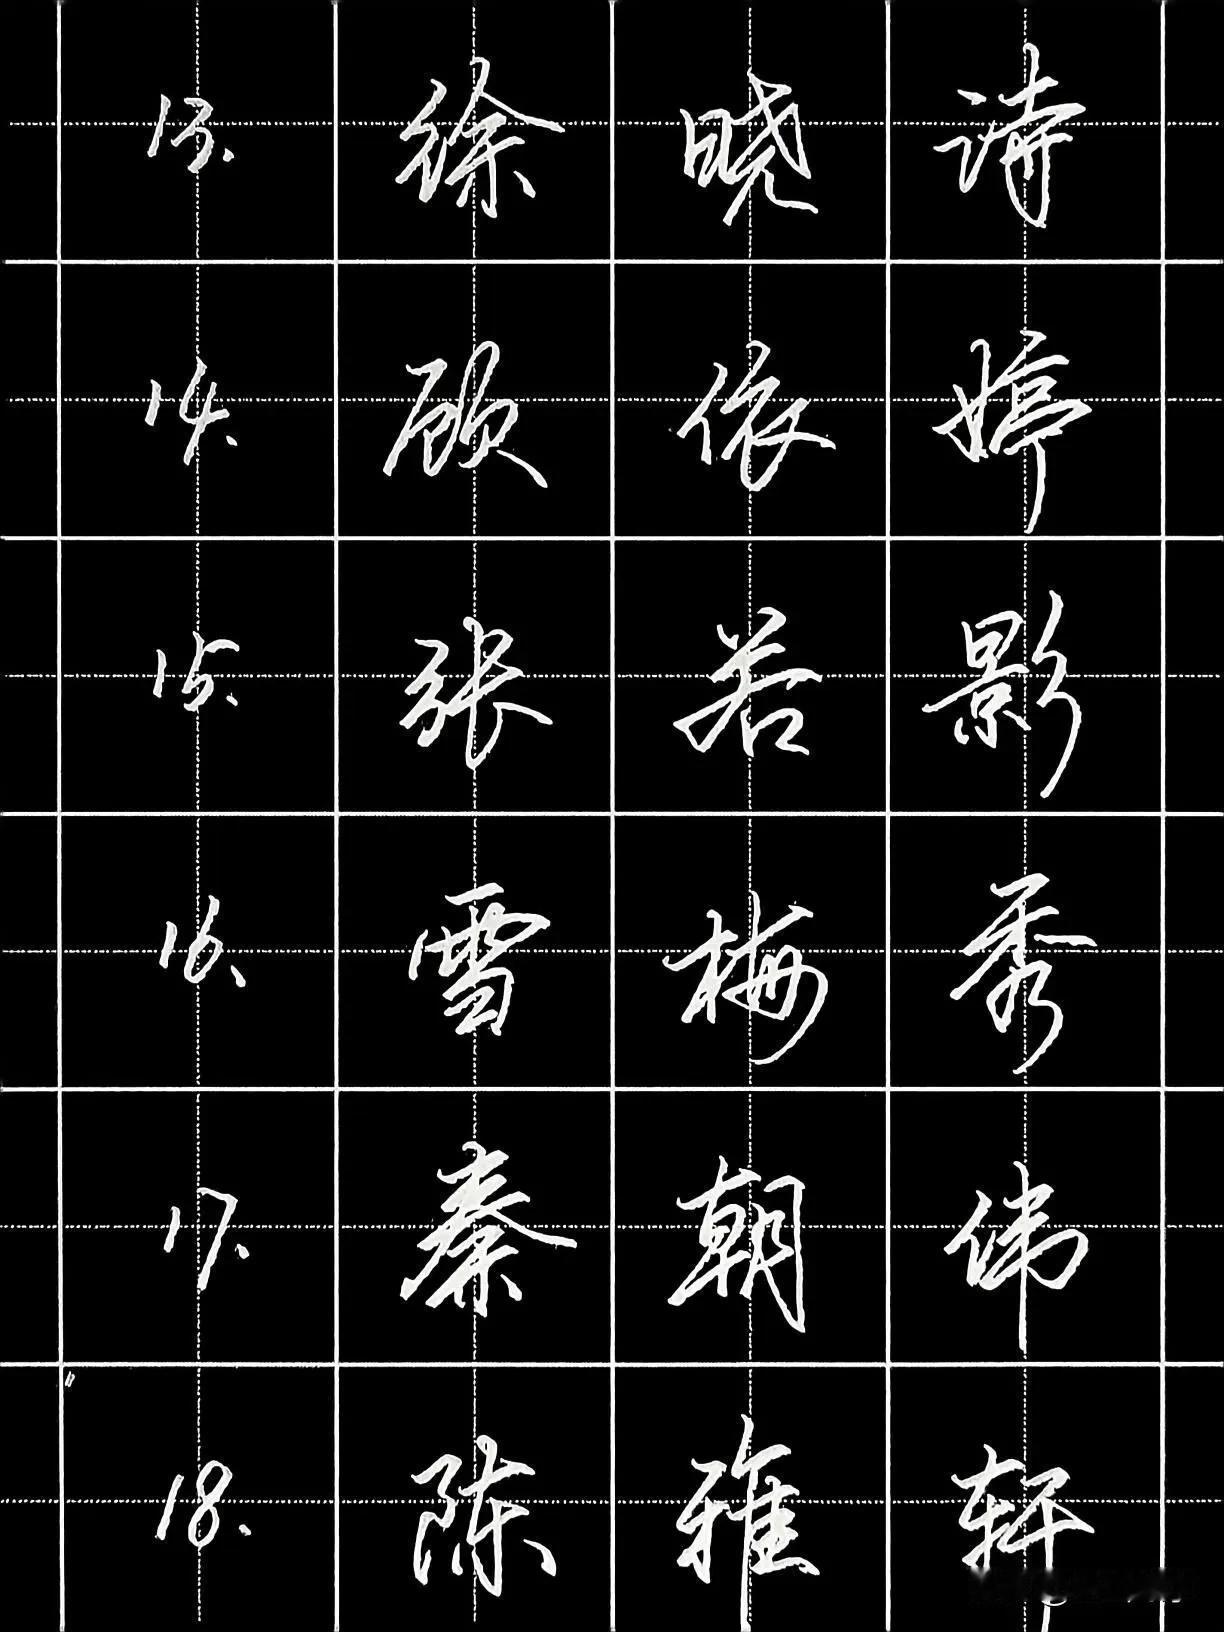 13. 徐晓诗
14. 顾依婷
15. 张若影
16. 雪梅秀
17. 秦朝伟
18. 陈雅轩